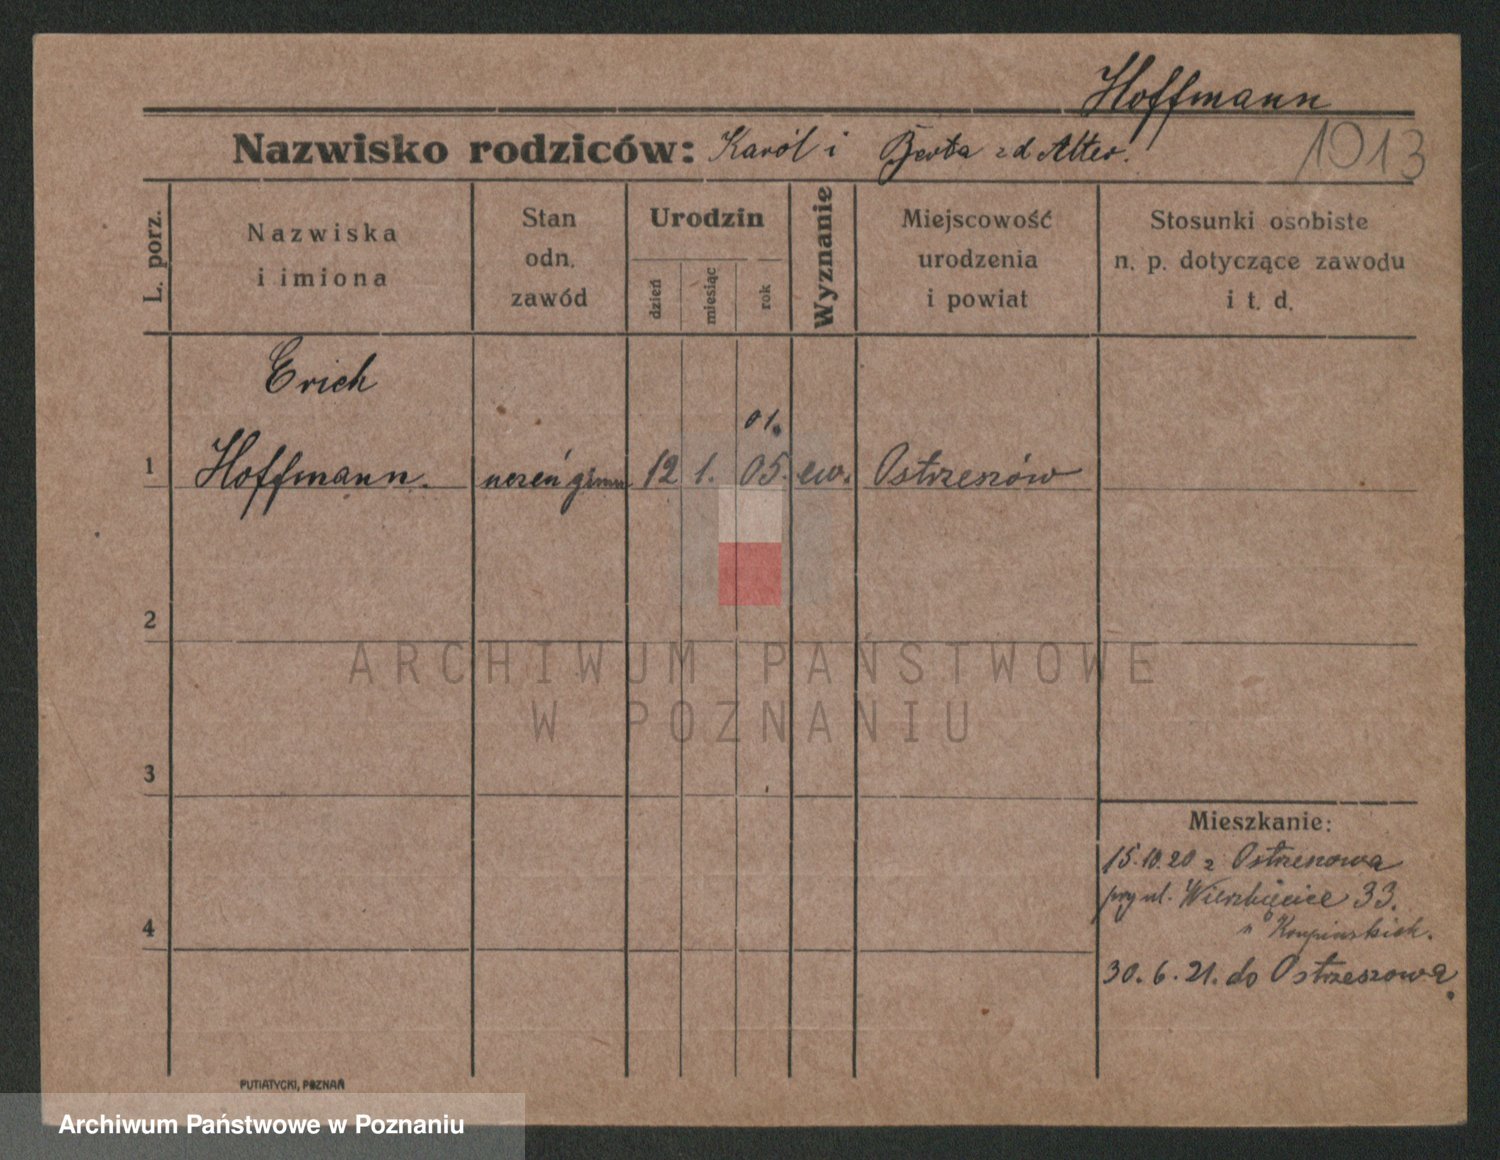 Hoffmann
Nazwisko rodziców: Karól i Berta zd Alter.
1013
L. porz.
Nazwiska
i imiona
Stan
odn.
zawód
Urodzin
dzień
miesiąc
rok
Wyznanie
Miejscowość
urodzenia
i powiat
Stosunki osobiste
n. p. dotyczące zawodu
i t. d.
Erich
01.
1 Hoffmann. uczeń gimn 12 1. 05. ew. Ostrzeszów
2
ARCHIWUM PAŃSTWOWE
W POZNANIU
3
Mieszkanie:
15.10.20 z Ostrzeszowa
przy ul. Wierzbięcice 33.
4
30.6.21. do Ostrzeszowa.
PUTIATYCKI, POZNAŃ
Archiwum Państwowe w Poznaniu